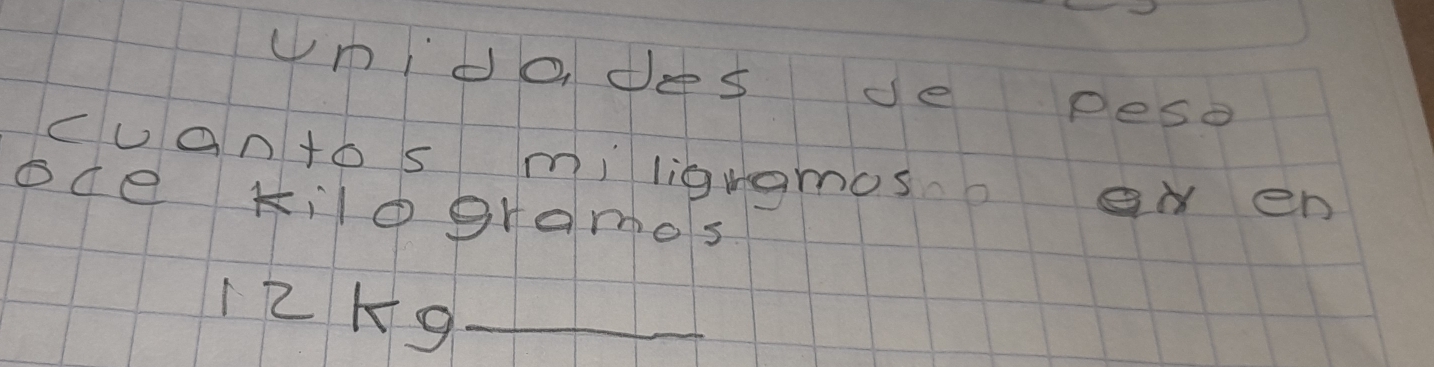 unidades de peso
cuantos miligramos en
oce kilogramos
12 kg